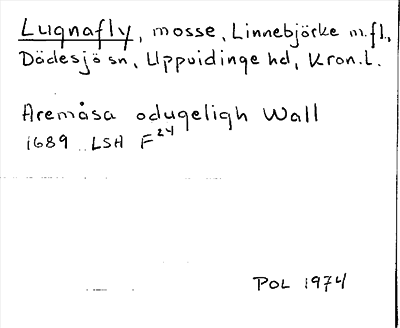 Lugnafly, mosse, Linnebjörke m.fl.,
Dädesjö sn, Uppvidinge hd, Kron.L.
Aremåsa odugeligh Wall
1689 LSH F24
POL 1974